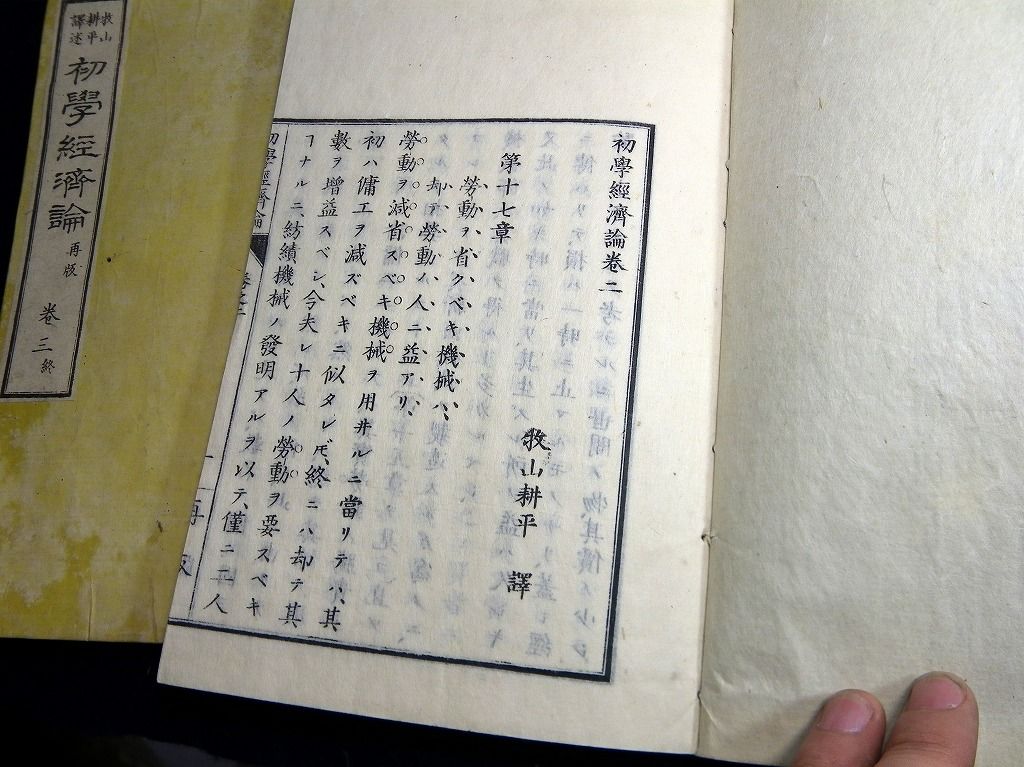 初學經濟論卷二
牧山耕平 譯
第十七章
勞動ヲ省クベキ機械ハ、
却テ勞動人ニ益アリ、
勞動ヲ減省スベキ機械ヲ用井ルニ當リテハ、其
初ハ傭工ヲ減ズベキニ似タレ𪜈、終ニハ却テ其
數ヲ增益スベシ、今夫レ十人ノ勞動ヲ要スベキ
ヿナルニ、紡績機械ノ發明アルヲ以テ、僅ニ二人
初學經濟論
卷之二
一
再
牧山
耕平
譯述
初學經濟論
再版
卷三
終